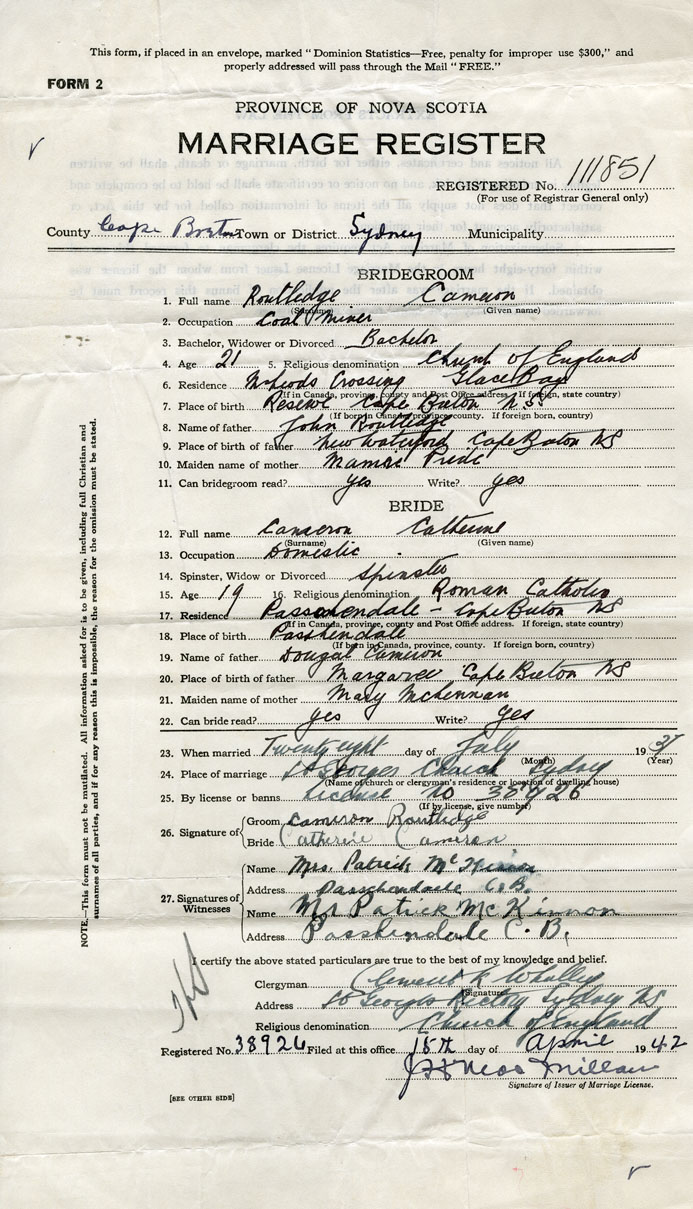 This form, if placed in an envelope, marked "Dominion Statistics—Free, penalty for improper use $300," and
properly addressed will pass through the Mail "FREE."
FORM 2
PROVINCE OF NOVA SCOTIA
MARRIAGE REGISTER
REGISTERED No. 111851
(For use of Registrar General only)
County Cape Breton Town or District Sydney Municipality
BRIDEGROOM
1. Full name Routledge Cameron
(Surname) (Given name)
2. Occupation Coal Miner
3. Bachelor, Widower or Divorced Bachelor
4. Age 21 5. Religious denomination Church of England
6. Residence McLeods Crossing Glace Bay
(If in Canada, province, county and Post Office address. If foreign, state country)
7. Place of birth Reserve Cape Breton N.S.
(If born in Canada, province, county. If foreign born, country)
8. Name of father John Routledge
9. Place of birth of father New Waterford Cape Breton NS
10. Maiden name of mother Pride
11. Can bridegroom read? yes Write? yes
BRIDE
12. Full name Cameron Catherine
(Surname) (Given name)
13. Occupation Domestic
14. Spinster, Widow or Divorced Spinster
15. Age 19 16. Religious denomination Roman Catholic
17. Residence Passchendale - Cape Breton NS
(If in Canada, province, county and Post Office address. If foreign, state country)
18. Place of birth Passhendale
(If born in Canada, province, county. If foreign born, country)
19. Name of father Dougal Cameron
20. Place of birth of father Margaree Cape Breton NS
21. Maiden name of mother Mary McLennan
22. Can bride read? yes Write? yes
23. When married Twenty eight day of July 1937
(Month) (Year)
24. Place of marriage St Georges Church Sydney
(Name of church or clergyman's residence or location of dwelling house)
25. By license or banns License No
(If by license, give number)
26. Signature of Groom Cameron Routledge
Bride Catherine Cameron
27. Signatures of Witnesses Name Mrs. Patrick McKinnon
Address Passchendaele C.B.
Name Mr Patrick McKinnon
Address Passhendale C. B.
I certify the above stated particulars are true to the best of my knowledge and belief.
Clergyman
(Signature)
Address St Georges Rectory Sydney NS
Religious denomination Church of England
Registered No. 38926 Filed at this office 15th day of April 1942
Signature of Issuer of Marriage License.
[SEE OTHER SIDE]
NOTE.—This form must not be mutilated. All information asked for is to be given, including full Christian and
surnames of all parties, and if for any reason this is impossible, the reason for the omission must be stated.